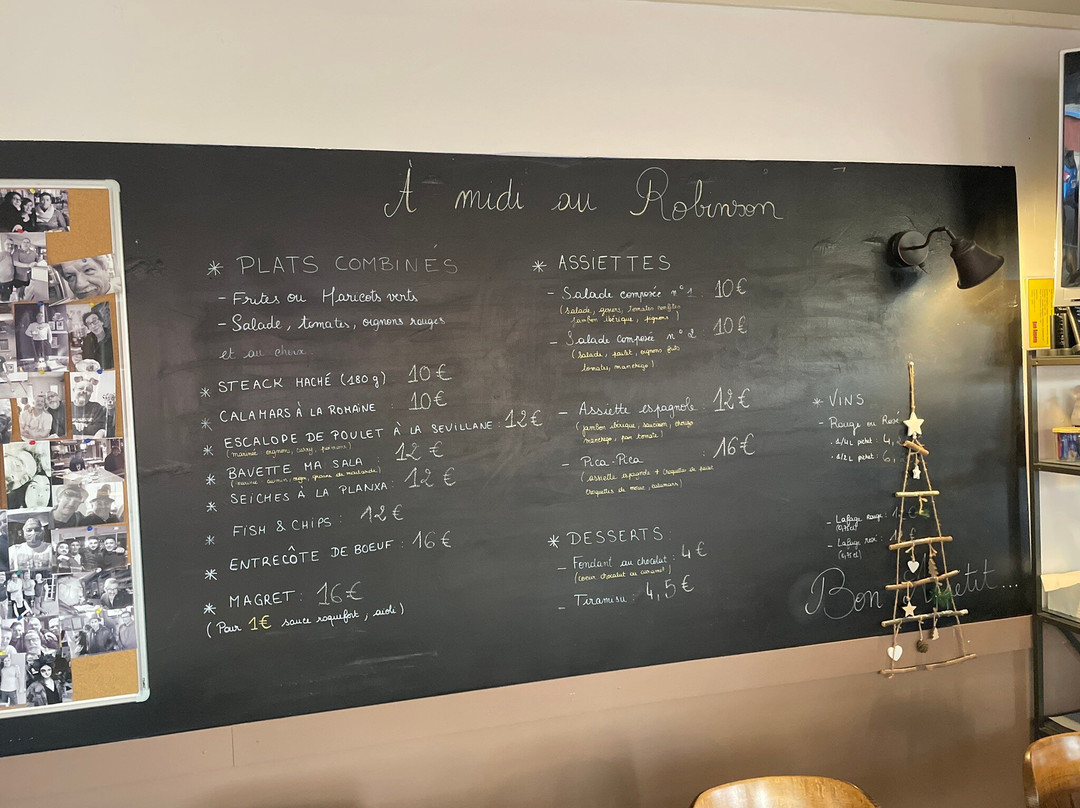 À midi au Robinson
* PLATS COMBINÉS
- Frites ou Haricots verts
- Salade, tomates, oignons rouges
et au choix
* STEACK HACHÉ (180 g) 10€
* CALAMARS À LA ROMAINE : 10€
* ESCALOPE DE POULET À LA SEVILLANE : 12€
(marinée oignons, curry, poivrons)
* BAVETTE MA SALA : 12€
(marinée : cumin, graine de moutarde)
* SEICHES À LA PLANXA : 12€
* FISH & CHIPS : 12€
* ENTRECÔTE DE BOEUF : 16€
* MAGRET : 16€
(Pour 1€ sauce roquefort, aioli)
* ASSIETTES
- Salade composée n°1 10€
(salade, tomates confites
jambon ibérique, pignons)
- Salade composée n°2 10€
(salade, poulet, oignons frits
tomates, manchego)
- Assiette espagnole : 12€
(jambon ibérique, saucisson, chorizo
manchego, pan tomate)
- Pica-Pica : 16€
(assiette espagnole + croquettes de poulet
croquettes de morue, calamars)
* DESSERTS :
- Fondant au chocolat : 4€
(coeur chocolat ou caramel)
- Tiramisu : 4,5€
* VINS
- Rouge ou Rosé
. 1/4L pichet : 4,
. 1/2L pichet : 6,
- Lafage rouge :
- Lafage rosé :
Bon Appetit...